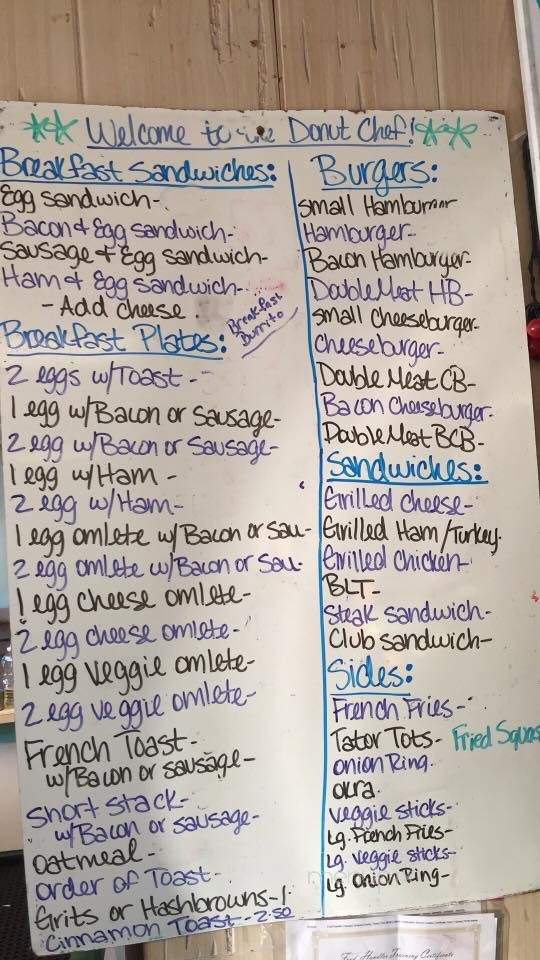 Welcome to the Donut Chef!
Breakfast Sandwiches:
Egg sandwich-
Bacon & Egg sandwich-
Sausage & Egg sandwich-
Ham & Egg sandwich-
- Add cheese.
Breakfast Burrito
Breakfast Plates:
2 eggs w/Toast -
1 egg w/Bacon or Sausage-
2 egg w/Bacon or Sausage-
1 egg w/Ham -
2 egg w/Ham-
1 egg omlete w/Bacon or Sau-
2 egg omlete w/Bacon or Sau-
1 egg cheese omlete-
2 egg cheese omlete-
1 egg veggie omlete-
2 egg veggie omlete-
French Toast-
w/Bacon or sausage-
Short stack-
w/Bacon or sausage-
oatmeal-
order of Toast-
Grits or Hashbrowns-1.
Cinnamon Toast--2.50
Burgers:
small Hamburger
Hamburger-
Bacon Hamburger-
Double Meat HB-
small Cheeseburger-
Cheeseburger-
Double Meat CB-
Bacon Cheeseburger-
Double Meat BCB-
Sandwiches:
Grilled Cheese-
Grilled Ham/Turkey-
Grilled Chicken-
BLT-
Steak sandwich-
Club sandwich-
Sides:
French Fries-
Tator Tots- Fried Squas
onion Ring-
okra-
veggie sticks-
Lg. French Fries-
Lg. veggie sticks-
Lg. onion Ring-
Food Handler Training Certificate